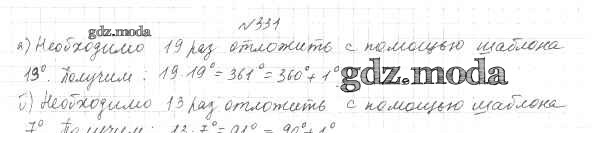 №331
gdz.moda
а) Необходимо 19 раз отложить с помощью шаблона
19°. Получим: 19·19° = 361° = 360° + 1°.
gdz.moda
б) Необходимо 13 раз отложить с помощью шаблона
7°. Получим: 13·7° = 91° = 90° + 1°